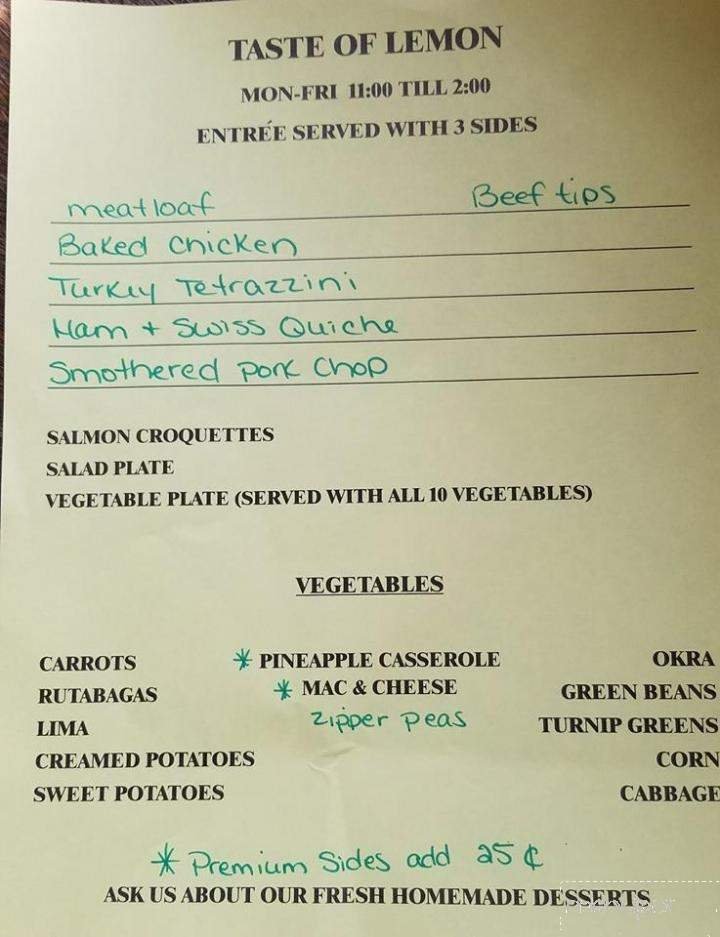 TASTE OF LEMON
MON-FRI 11:00 TILL 2:00
ENTRÉE SERVED WITH 3 SIDES
meatloaf Beef tips
Baked Chicken
Turkey Tetrazzini
Ham + Swiss Quiche
Smothered Pork Chop
SALMON CROQUETTES
SALAD PLATE
VEGETABLE PLATE (SERVED WITH ALL 10 VEGETABLES)
VEGETABLES
CARROTS * PINEAPPLE CASSEROLE OKRA
RUTABAGAS * MAC & CHEESE GREEN BEANS
LIMA zipper peas TURNIP GREENS
CREAMED POTATOES CORN
SWEET POTATOES CABBAGE
* Premium Sides add 25 ¢
ASK US ABOUT OUR FRESH HOMEMADE DESSERTS